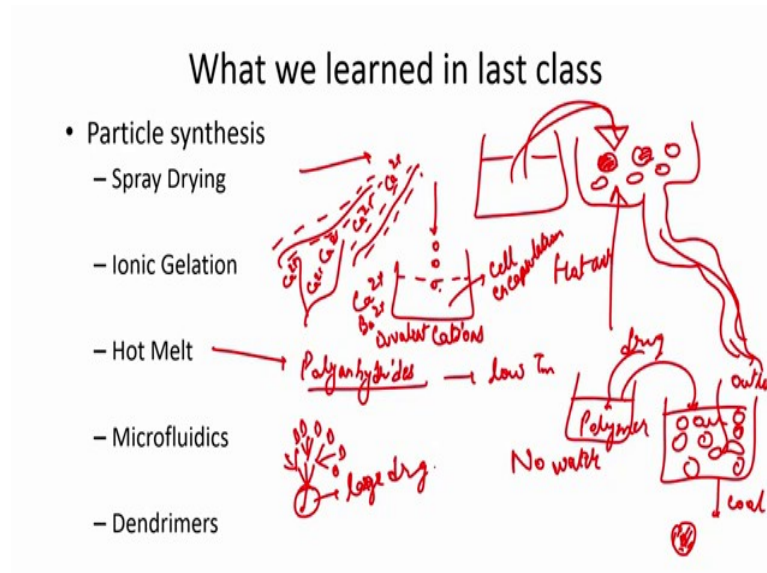 What we learned in last class
• Particle synthesis
– Spray Drying
– Ionic Gelation
– Hot Melt
– Microfluidics
– Dendrimers
Ca2+
Ca2+
Ca2+
Ca2+
Ca2+
Ca2+
Ca2+
Ba2+
Divalent Cations
cell
encapsulation
Hot air
Polyanhydrides – low Tm
drug
Polymer
No water
Oil
cool